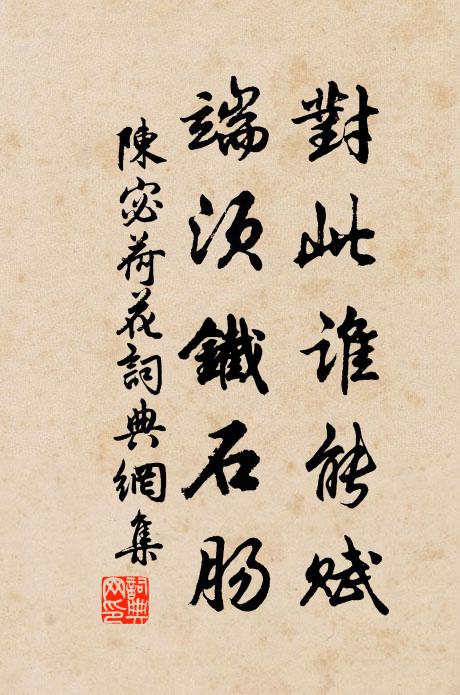 對此誰能賦
端須鐵石腸
陳宓荷花詞典網集
詞典網印